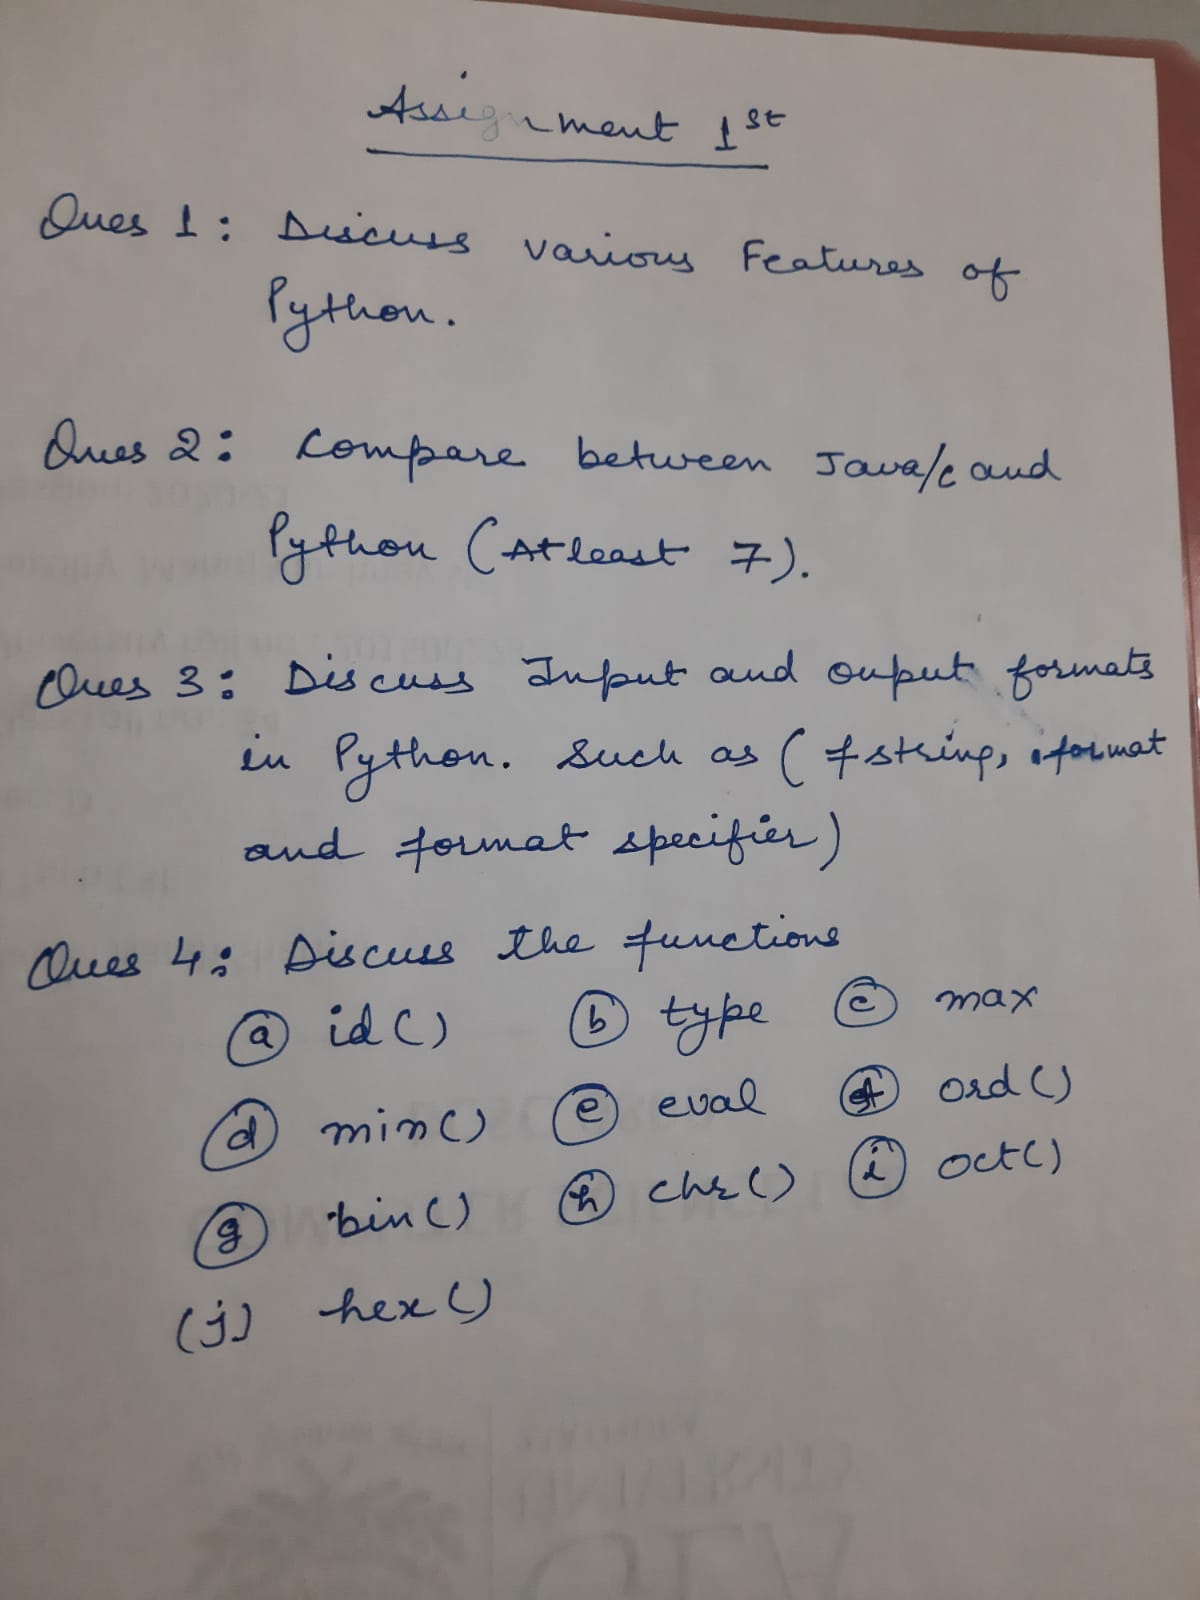 Assignment 1st
Ques 1: Discuss various Features of
Python.
Ques 2: Compare between Java/c and
Python (Atleast 7).
Ques 3: Discuss Input and ouput formats
in Python. Such as (f string, .format
and format specifier)
Ques 4: Discuss the functions
(a) id() (b) type (c) max
(d) min() (e) eval (f) ord()
(g) bin() (h) chr() (i) oct()
(j) hex()